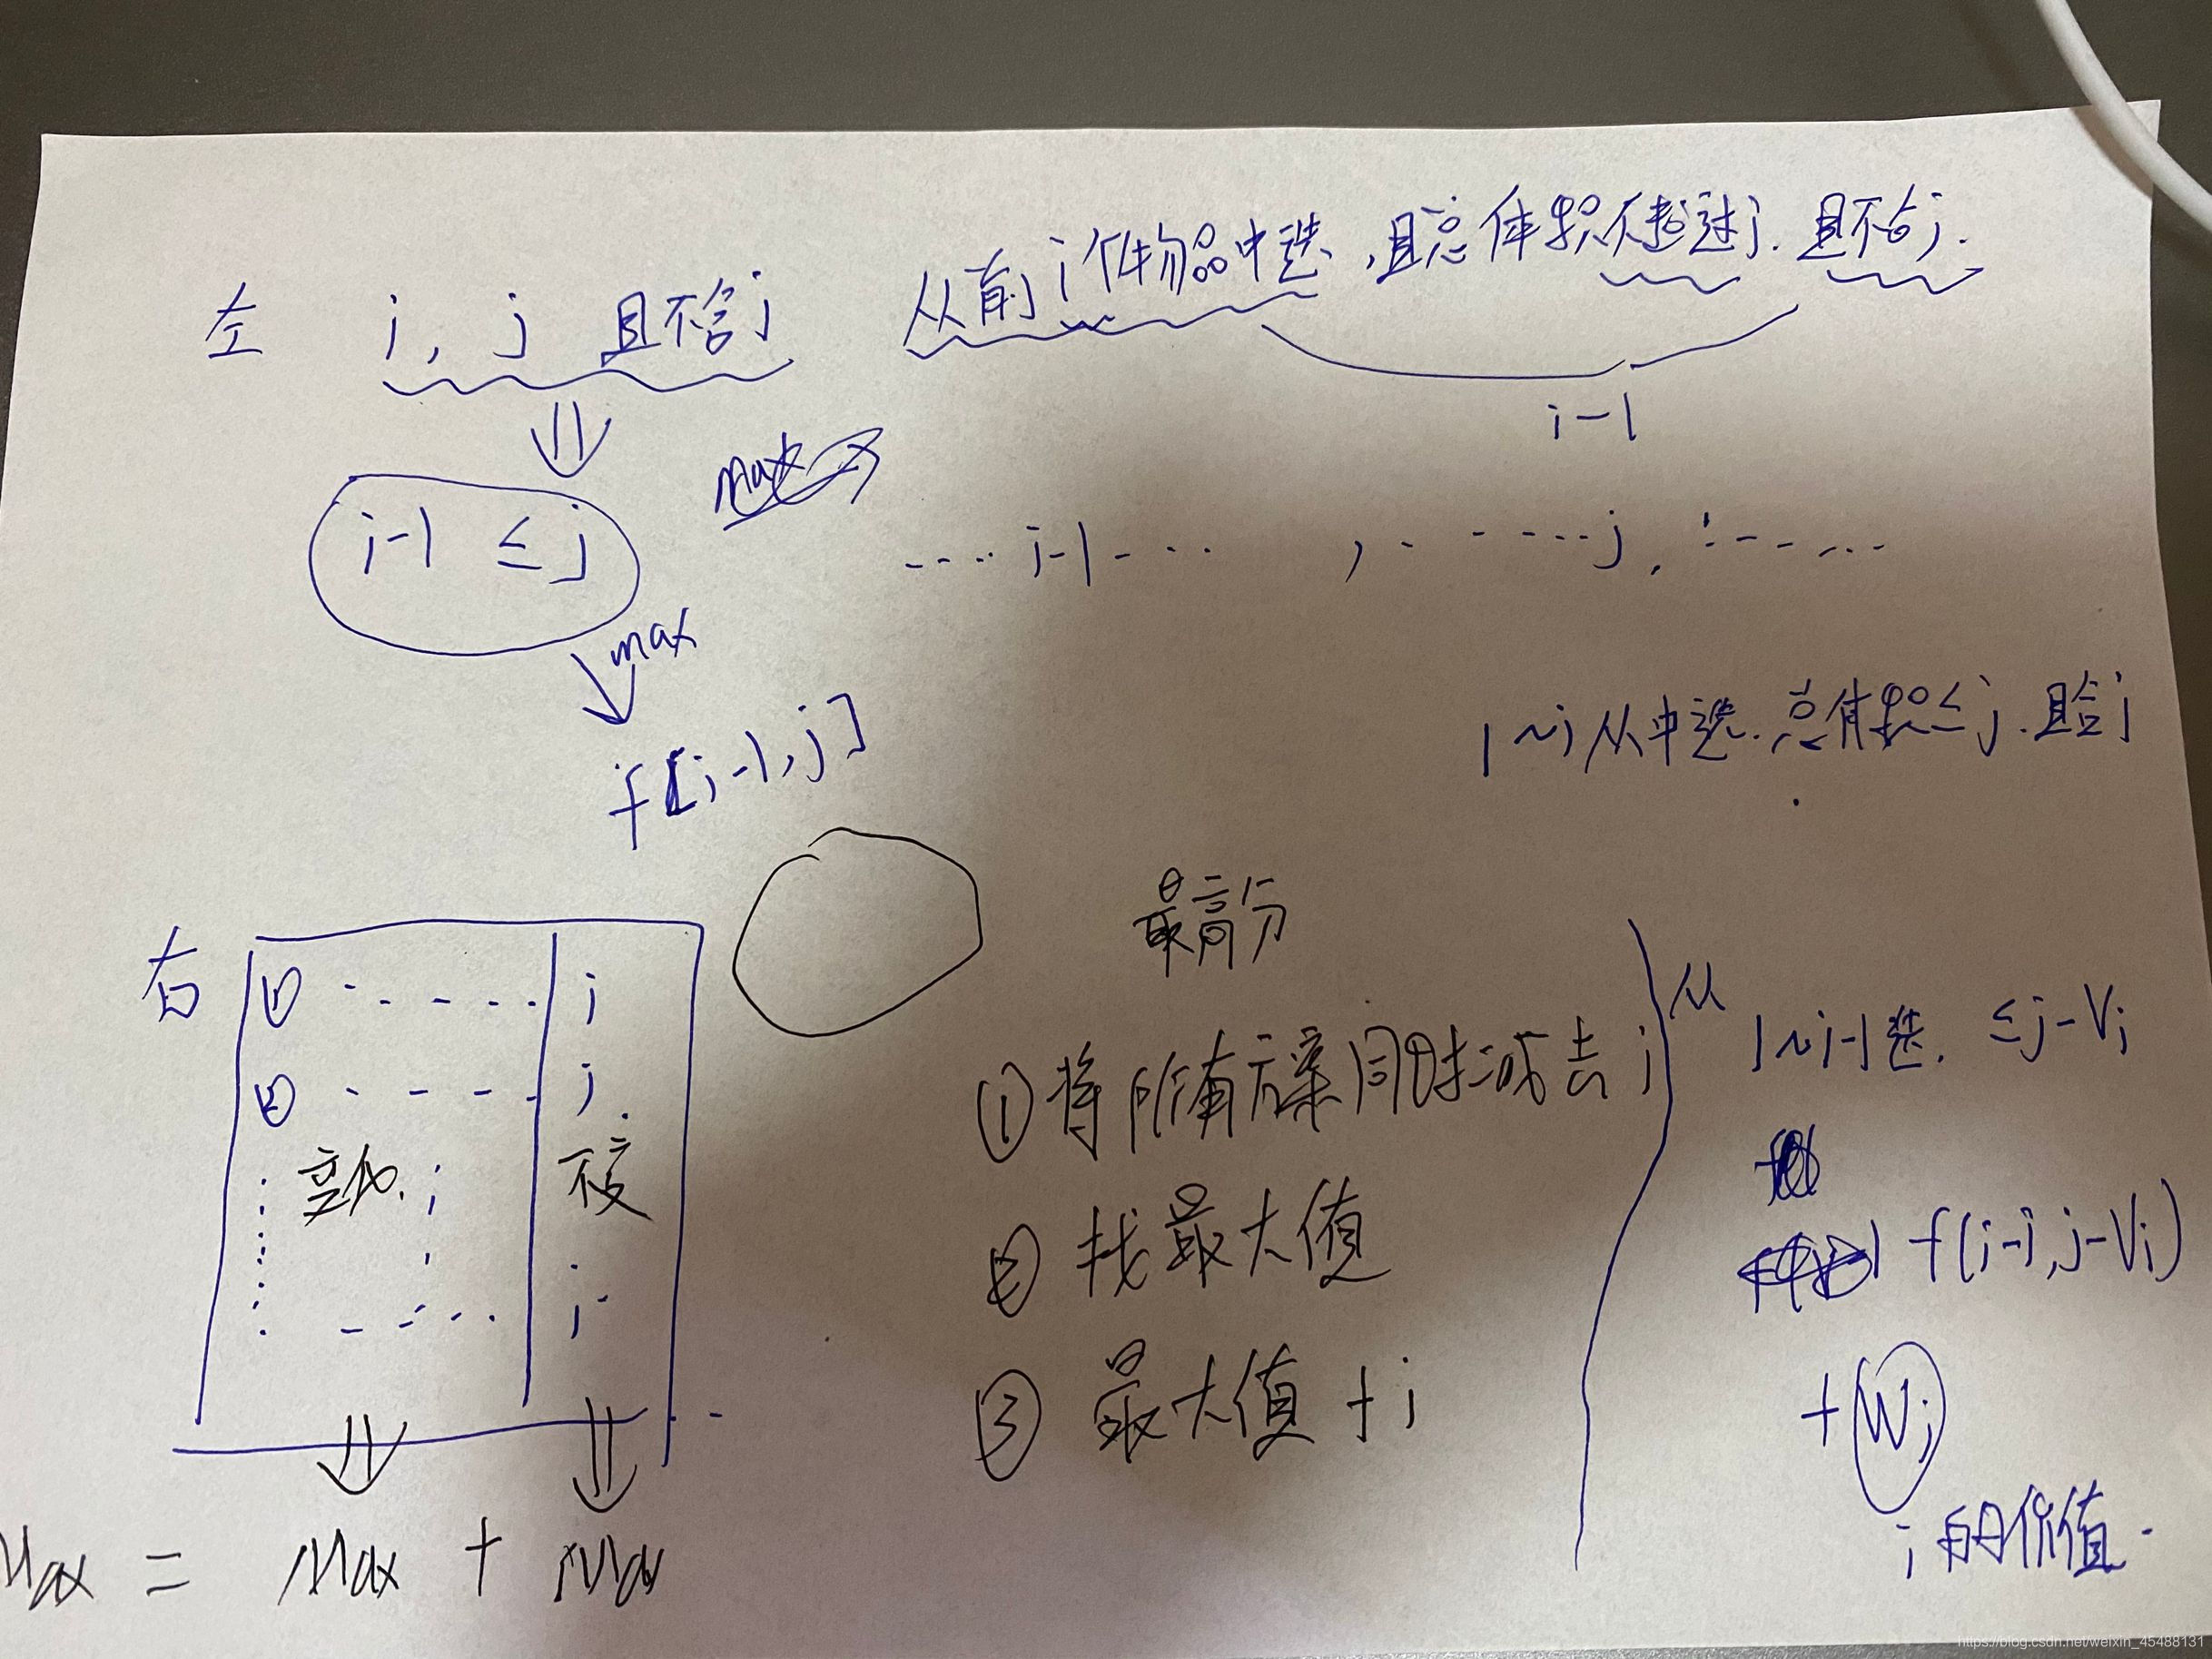 左 i, j 且不含i 从前i件物品中选,且总体积不超过j.且不含i.
i-1
i-1 ≤j
---- i-1 - - - , - - ---- j. ---...
max
f[i-1,j]
1~i从中选.总体积≤j.且含i
最高分
右 ① - - - - - i
② - - - - i
变化. 不变
- - - - - i
①将所有方案同时减去i
②找最大值
③最大值+i
从1~i-1选. ≤j-Vi
f(i-1,j-Vi)
+Wi
i的价值.
Max = Max + Max
https://blog.csdn.net/weixin_45488131